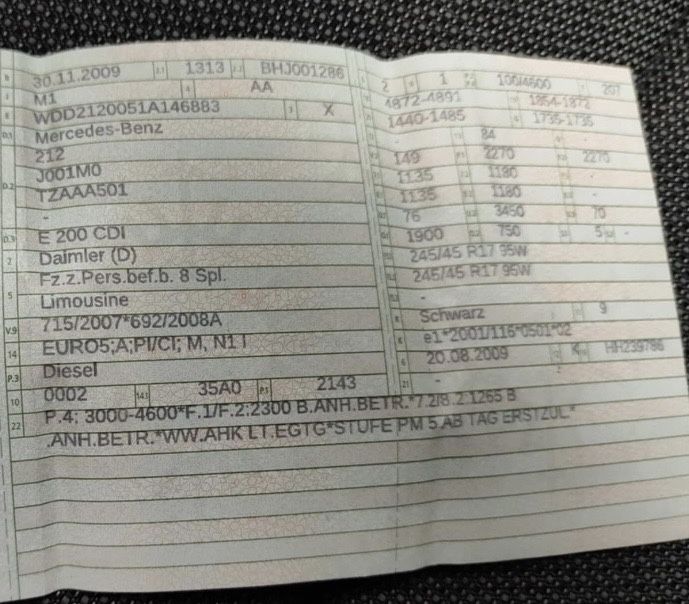 30.11.2009 1313 BHJ001286 2 1 100/4600 207
M1 AA 4872-4891 1854-1872
WDD2120051A146883 X 1440-1485 1735-1735
Mercedes-Benz - 84 -
212 149 2270 2270
J001M0 1135 1180 -
TZAAA501 1135 1180 -
- 76 3450 70
E 200 CDI 1900 750 5 -
Daimler (D) 245/45 R17 95W
Fz.z.Pers.bef.b. 8 Spl. 245/45 R17 95W
Limousine -
715/2007*692/2008A Schwarz 9
EURO5;A;PI/CI; M, N1 I e1*2001/116*0501*02
Diesel 20.08.2009 K HH239786
0002 35A0 2143 -
P.4: 3000-4600*F.1/F.2:2300 B.ANH.BETR.*7.2/8.2:1265 B
.ANH.BETR.*WW.AHK LT.EGTG*STUFE PM 5 AB TAG ERSTZUL.*